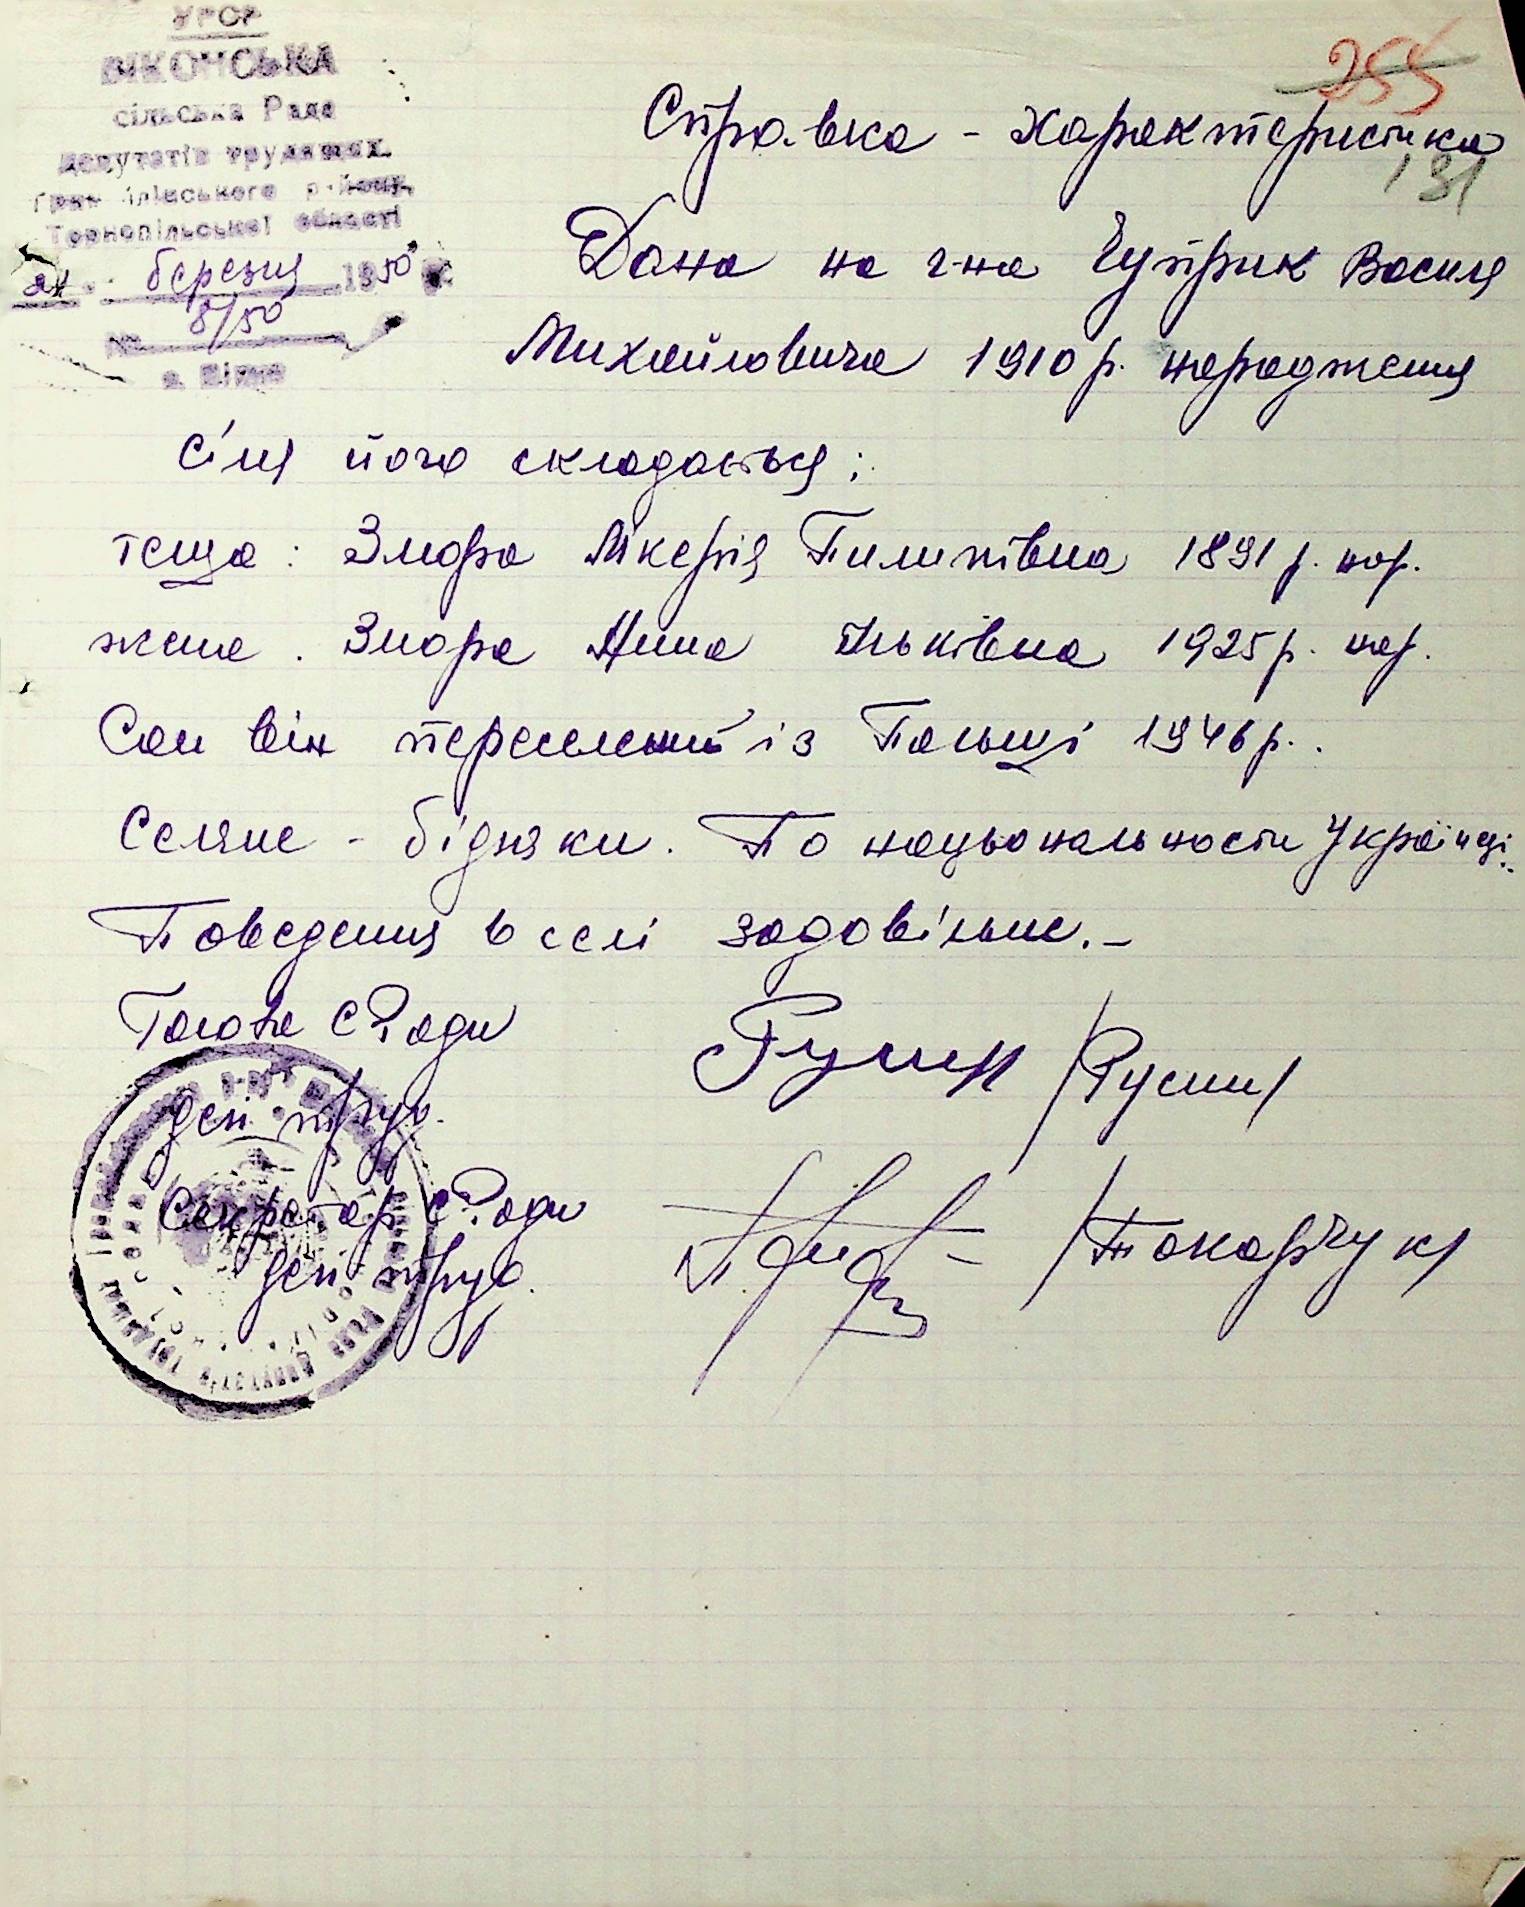 УРСР
ВІКОНСЬКА
сільська Рада
депутатів трудящих
Гримайлівського району,
Тернопільської області
24 березня 1950
№ 8/50
с. Вікно
255
Справка - характеристика
191
Дана на г-на Чуприк Василя
Михайловича 1910 р. народження
Сімя його складається:
теща: Змора Мікерія Пилипівна 1891 р. нар.
жена. Змора Анна Ільківна 1925 р. нар.
Сам він переселений із Польщі 1946 р.
Селяне - бідняки. По національности Українці.
Поведення в селі задовільне.-
Голова с Ради
деп. труд. Русин /Русин/
Секретар с Ради
деп. труд. /Токарчук/